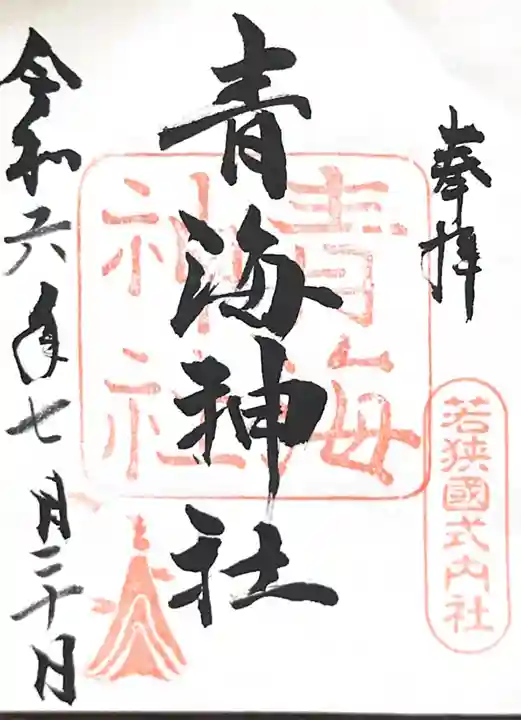 奉拝
若狭國式内社
青海神社
青海神社
令和六年七月二十日